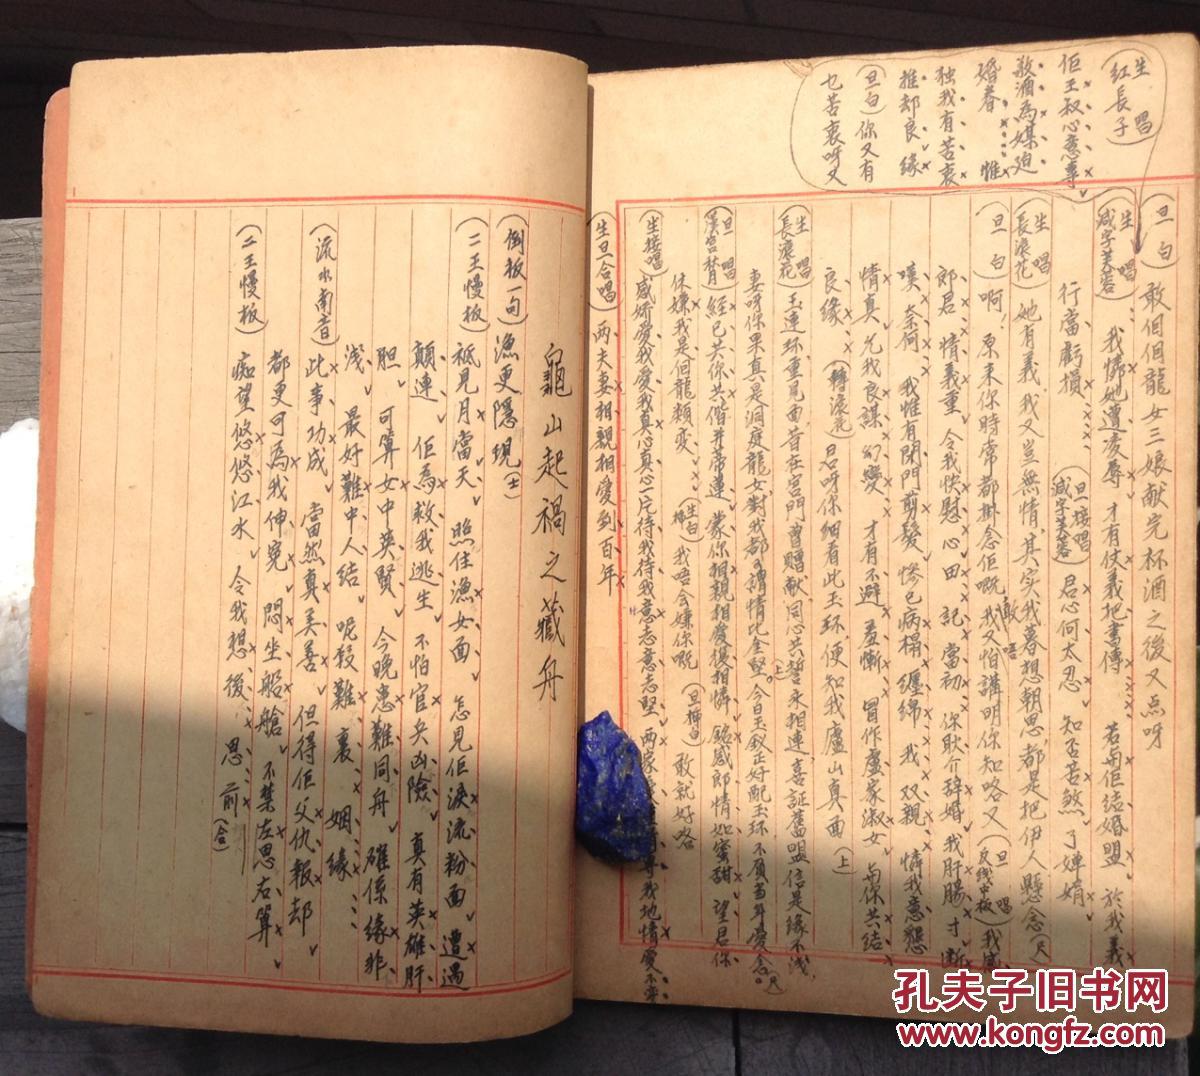 生唱
(紅長子)
佢王叔心意專
敬酒為媒廹
婚眷 惟
独我有苦衷
推却良緣
(旦白)你又有
乜苦衷呀又
(旦白)敢個個龍女三娘献完杯酒之後又点呀
(生唱 咸字芙蓉)我憐她遭凌辱 才有仗義把書傳 若与佢結婚盟 於我義
行當虧損 (旦接唱 咸字芙蓉)君心何太忍 知否苦煞了嬋娟
(生唱 長滾花)她有義我又豈無情其实我暮想朝思都是把伊人懸念(尺)
(旦白)啊!原来你時常都掛念佢嘅我又怕講明你知咯又(旦唱 反线中板)我感
敢唔
郎君 情義重 令我快慰心田 記當初 你耿介辞婚 我肝腸寸断
嘆奈何 我惟有閉門剪髮 惨已病榻纏綿 我双親 憐我意懇
情真 允我良謀幻變 才有不避羞慚 冒作盧家淑女 与你共结
良緣 (轉滾花)君呀你細看此玉环便知我盧山真面(上)
(生唱 長滾花)玉連环重見面昔在宮門曾贈献同心共誓永相連喜証舊盟信是緣不浅
妻呀你果真是洞庭龍女對我都可謂情比金堅(上)今日玉釵正好配玉环不負當年愛念(尺)
(旦唱 漢宮替)經已共你共偕並蒂蓮 蒙你相親相愛復相憐 銘感郎情如蜜甜 望君你
休嫌我是個龍類变(生白)我唔会嫌你嘅(旦插白)敢就好咯
(生接唱)感娇愛我愛我真心真心一片待我待我意志意志堅 两家
(生旦合唱)两夫妻相親相愛到百年
龜山起禍之藏舟
(倒板一句)漁更隱現(士)
(二王慢板)祗見月當天 照住漁女面 怎見佢淚流粉面 遭遇
顛連 佢為救我逃生 不怕官兵凶險 真有英雄肝
胆 可算女中英賢 今晚患難同舟 確係緣非
浅 最好難中人结呢殺難裏姻緣
(流水南音)此事功成 當然真美善 但得佢父仇報却
都更可為我伸冤 悶坐船艙 不禁左思右算
(二王慢板)痴望悠悠江水 令我想後思前(合)
孔夫子旧书网
www.kongfz.com